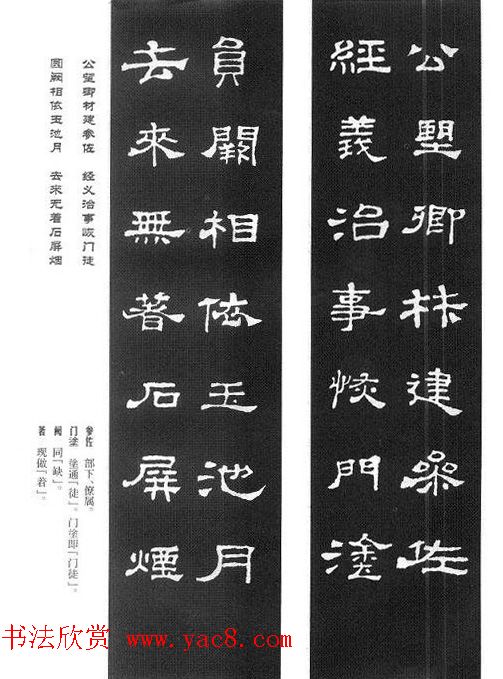 公望卿材建參佐
經義治事恢門塗
員闕相依玉池月
去來無著石屏煙
公望卿材建参佐 经义治事恢门徒
圆阙相依玉池月 去来无着石屏烟
参佐 部下、僚属。
门塗 塗通「徒」。门塗即「门徒」。
阙 同「缺」。
著 现做「着」。
书法欣赏 www.yac8.com